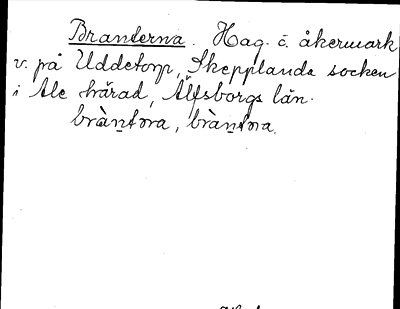 Branterna. Hag. o. åkermark
v. på Uddetorp, Skepplanda socken
i Ale härad, Älfsborgs län.
bràn̠tɷra, bràn̠tɷna.